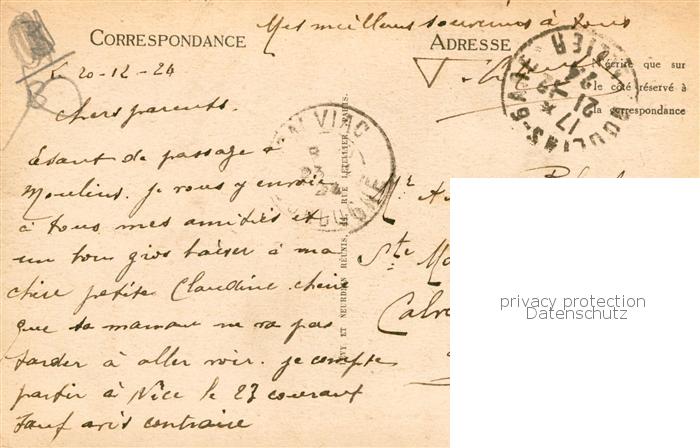 Mes meilleurs souvenirs à tous
CORRESPONDANCE
ADRESSE
N'écrire que sur
le côté réservé à
la correspondance
le 20-12-24
chers parents.
Etant de passage à
Moulins. je vous y envoie
à tous mes amitiés et
un tou gros baiser à ma
chère petite Claudine chérie
que ta maman ne va pas
tarder à aller voir. je compte
partir à Nice le 23 courant
sauf avis contraire
MOULINS-GARE
ALLIER
17 *
21 -12
24
CALVIAC
DORDOGNE
LÉVY ET NEURDEIN RÉUNIS, 44, RUE LETELLIER, PARIS.
Mr
Ste
Calv
privacy protection
Datenschutz